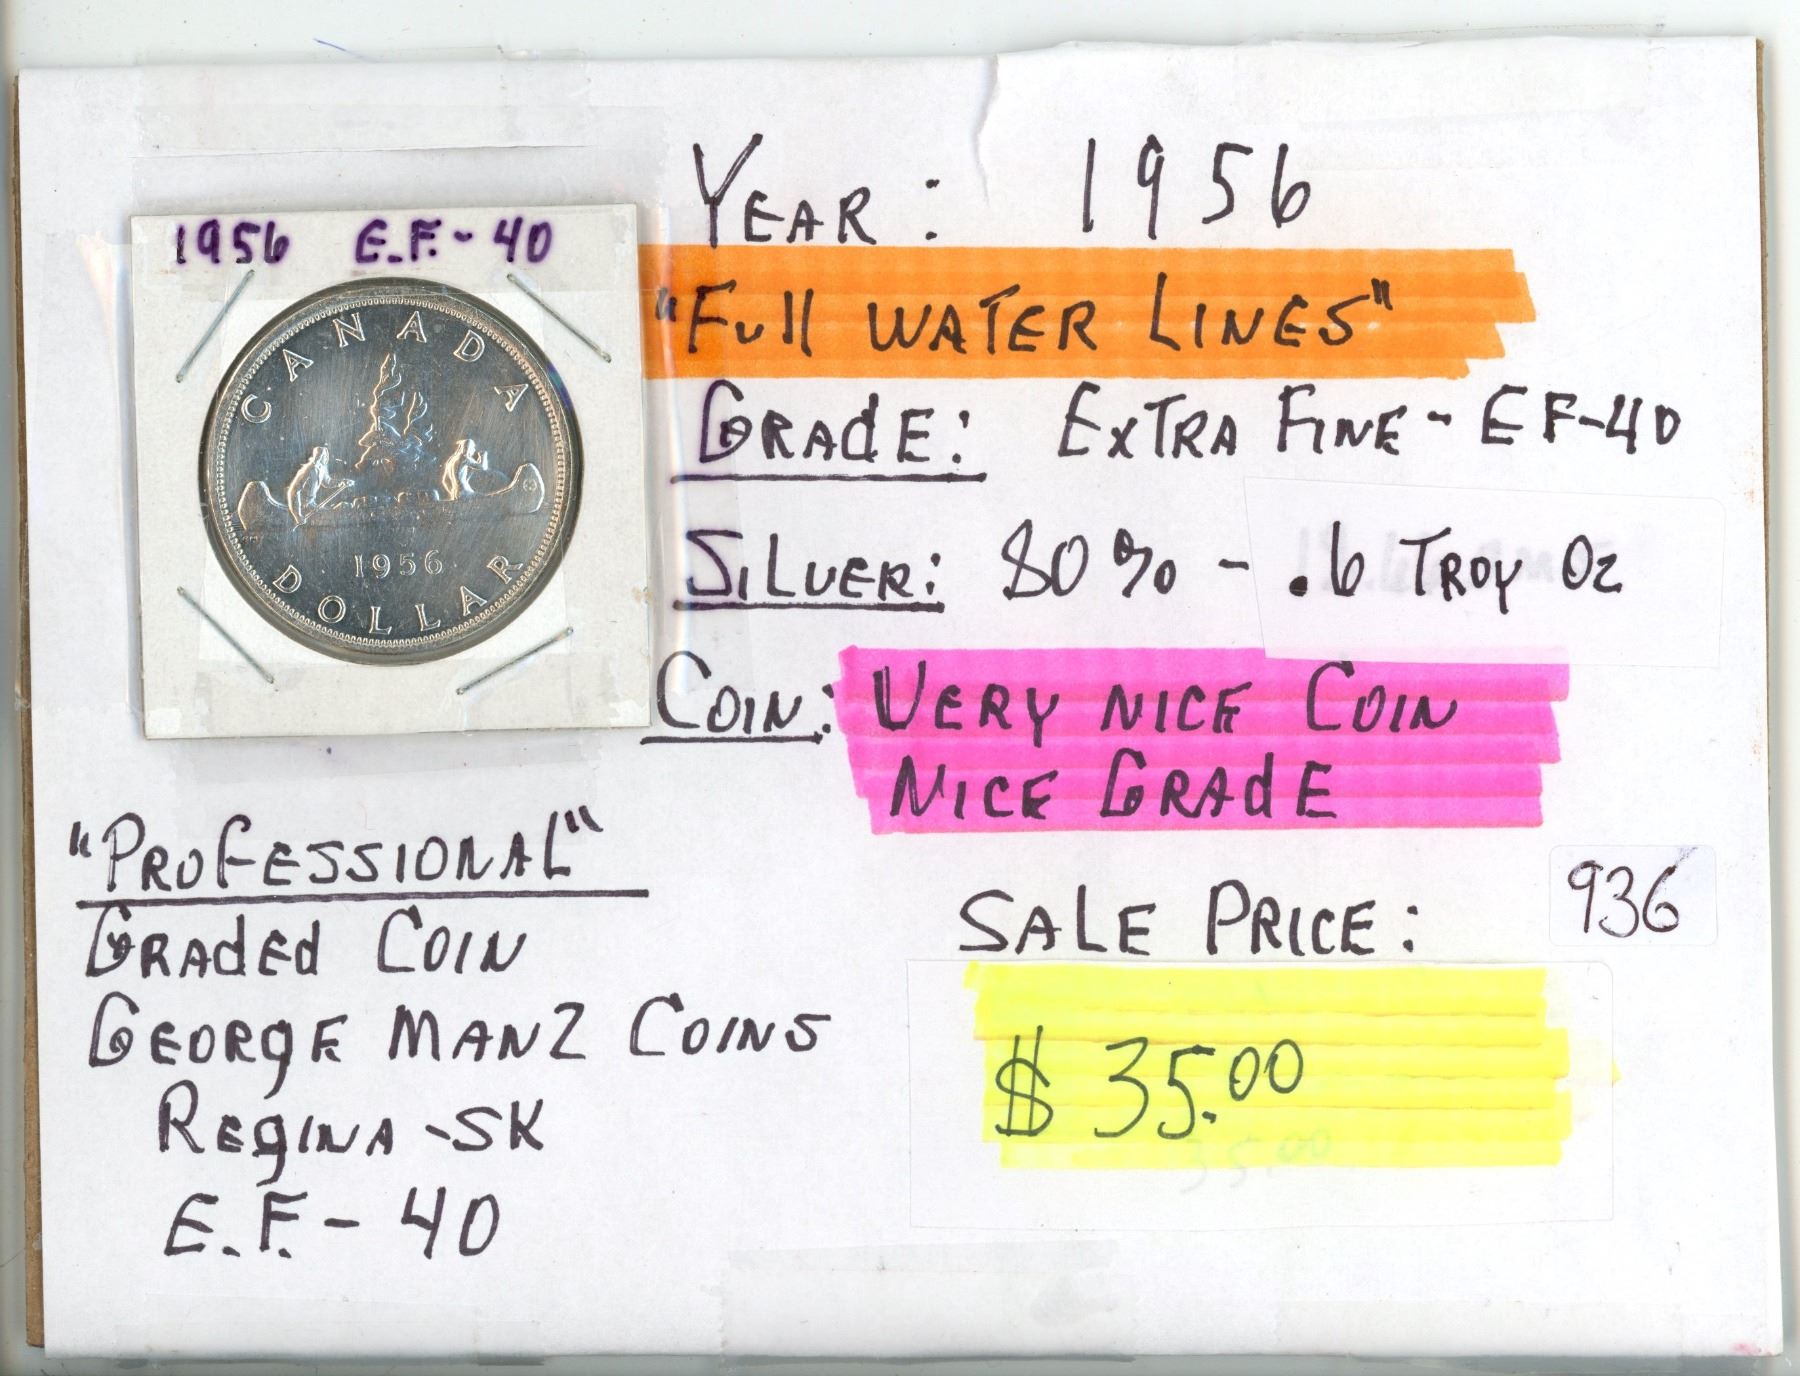 1956 E.F.- 40
CANADA
1956
DOLLAR
YEAR: 1956
"Full WATER LINES"
GRAdE: ExTRA FINE - EF-40
SILVER: 80% - .6 TROY Oz
COIN: VERY NICE COIN
NICE GRAdE
"PROFESSIONAL"
GRAdEd COIN
GEORgE MANZ COINS
REgINA -SK
E.F.- 40
SALE PRICE:
936
$ 35.00
35.00